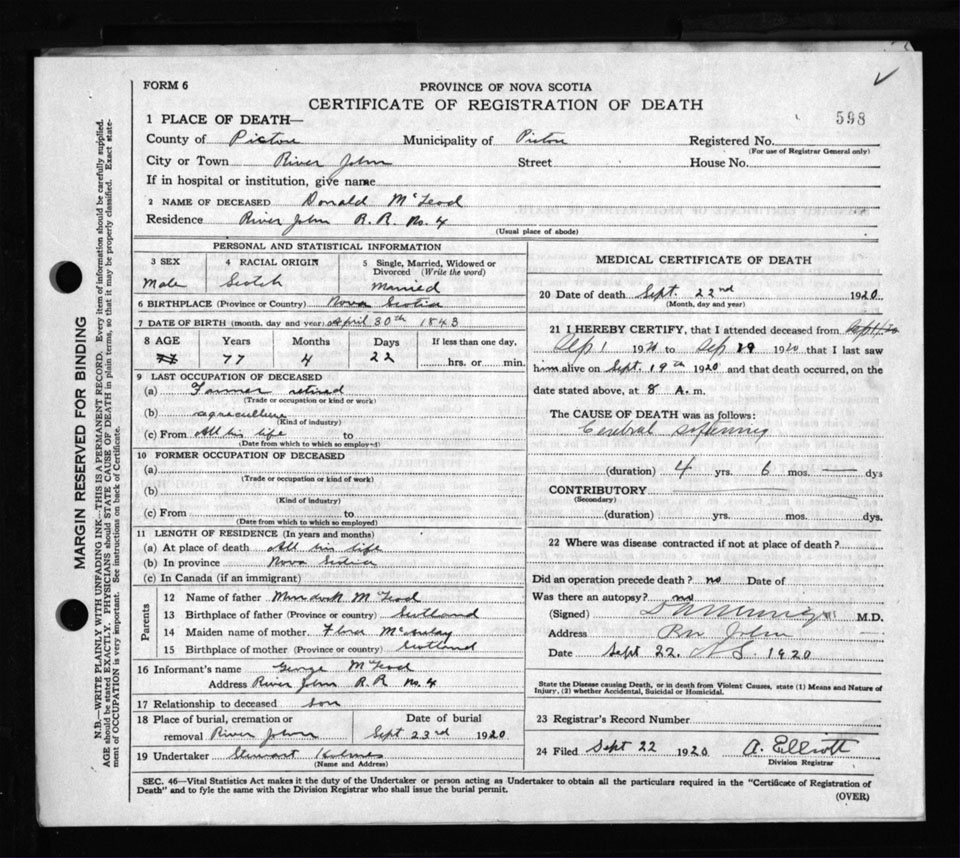 FORM 6
PROVINCE OF NOVA SCOTIA
CERTIFICATE OF REGISTRATION OF DEATH
598
1 PLACE OF DEATH—
County of Pictou Municipality of Pictou Registered No.
(For use of Registrar General only)
City or Town River John Street House No.
If in hospital or institution, give name
2 NAME OF DECEASED Donald McLeod
Residence River John R. R. No. 4
(Usual place of abode)
PERSONAL AND STATISTICAL INFORMATION
3 SEX 4 RACIAL ORIGIN 5 Single, Married, Widowed or Divorced (Write the word)
Male Scotch Married
6 BIRTHPLACE (Province or Country) Nova Scotia
7 DATE OF BIRTH (month, day and year) April 30th 1843
8 AGE Years Months Days If less than one day,
77 77 4 22 hrs. or min.
9 LAST OCCUPATION OF DECEASED
(a) Farmer retired
(Trade or occupation or kind or work)
(b) agraculture
(Kind of industry)
(c) From All his life to
(Date from which to which so employed)
10 FORMER OCCUPATION OF DECEASED
(a)
(Trade or occupation or kind of work)
(b)
(Kind of industry)
(c) From to
(Date from which to which so employed)
11 LENGTH OF RESIDENCE (In years and months)
(a) At place of death All his life
(b) In province Nova Scotia
(c) In Canada (if an immigrant)
Parents
12 Name of father Murdock McLeod
13 Birthplace of father (Province or country) Scotland
14 Maiden name of mother Flora McAulay
15 Birthplace of mother (Province or country) Scotland
16 Informant's name George McLeod
Address River John R. R. No. 4
17 Relationship to deceased son
18 Place of burial, cremation or removal River John
Date of burial Sept 23rd 1920
19 Undertaker Stewart Holmes
(Name and Address)
MEDICAL CERTIFICATE OF DEATH
20 Date of death Sept. 22nd 1920
(Month, day and year)
21 I HEREBY CERTIFY, that I attended deceased from
Sep 1 1920 to Sep 19 1920 that I last saw
him alive on Sept. 19th 1920 and that death occurred, on the
date stated above, at 8 A. m.
The CAUSE OF DEATH was as follows:
Cerebral Softening
(duration) 4 yrs. 6 mos. — dys
CONTRIBUTORY
(Secondary)
(duration) yrs. mos. dys.
22 Where was disease contracted if not at place of death?
Did an operation precede death? no Date of
Was there an autopsy? no
(Signed) M.D.
Address River John
Date Sept 22. N S. 1920
State the Disease causing Death, or in death from Violent Causes, state (1) Means and Nature of
Injury, (2) whether Accidental, Suicidal or Homicidal.
23 Registrar's Record Number
24 Filed Sept 22 1920 A. Elliott
Division Registrar
SEC. 46—Vital Statistics Act makes it the duty of the Undertaker or person acting as Undertaker to obtain all the particulars required in the "Certificate of Registration of
Death" and to fyle the same with the Division Registrar who shall issue the burial permit.
(OVER)
MARGIN RESERVED FOR BINDING
N.B.—WRITE PLAINLY WITH UNFADING INK—THIS IS A PERMANENT RECORD. Every item of information should be carefully supplied.
AGE should be stated EXACTLY. PHYSICIANS should STATE CAUSE OF DEATH in plain terms, so that it may be properly classified. Exact state-
ment of OCCUPATION is very important. See instructions on back of Certificate.